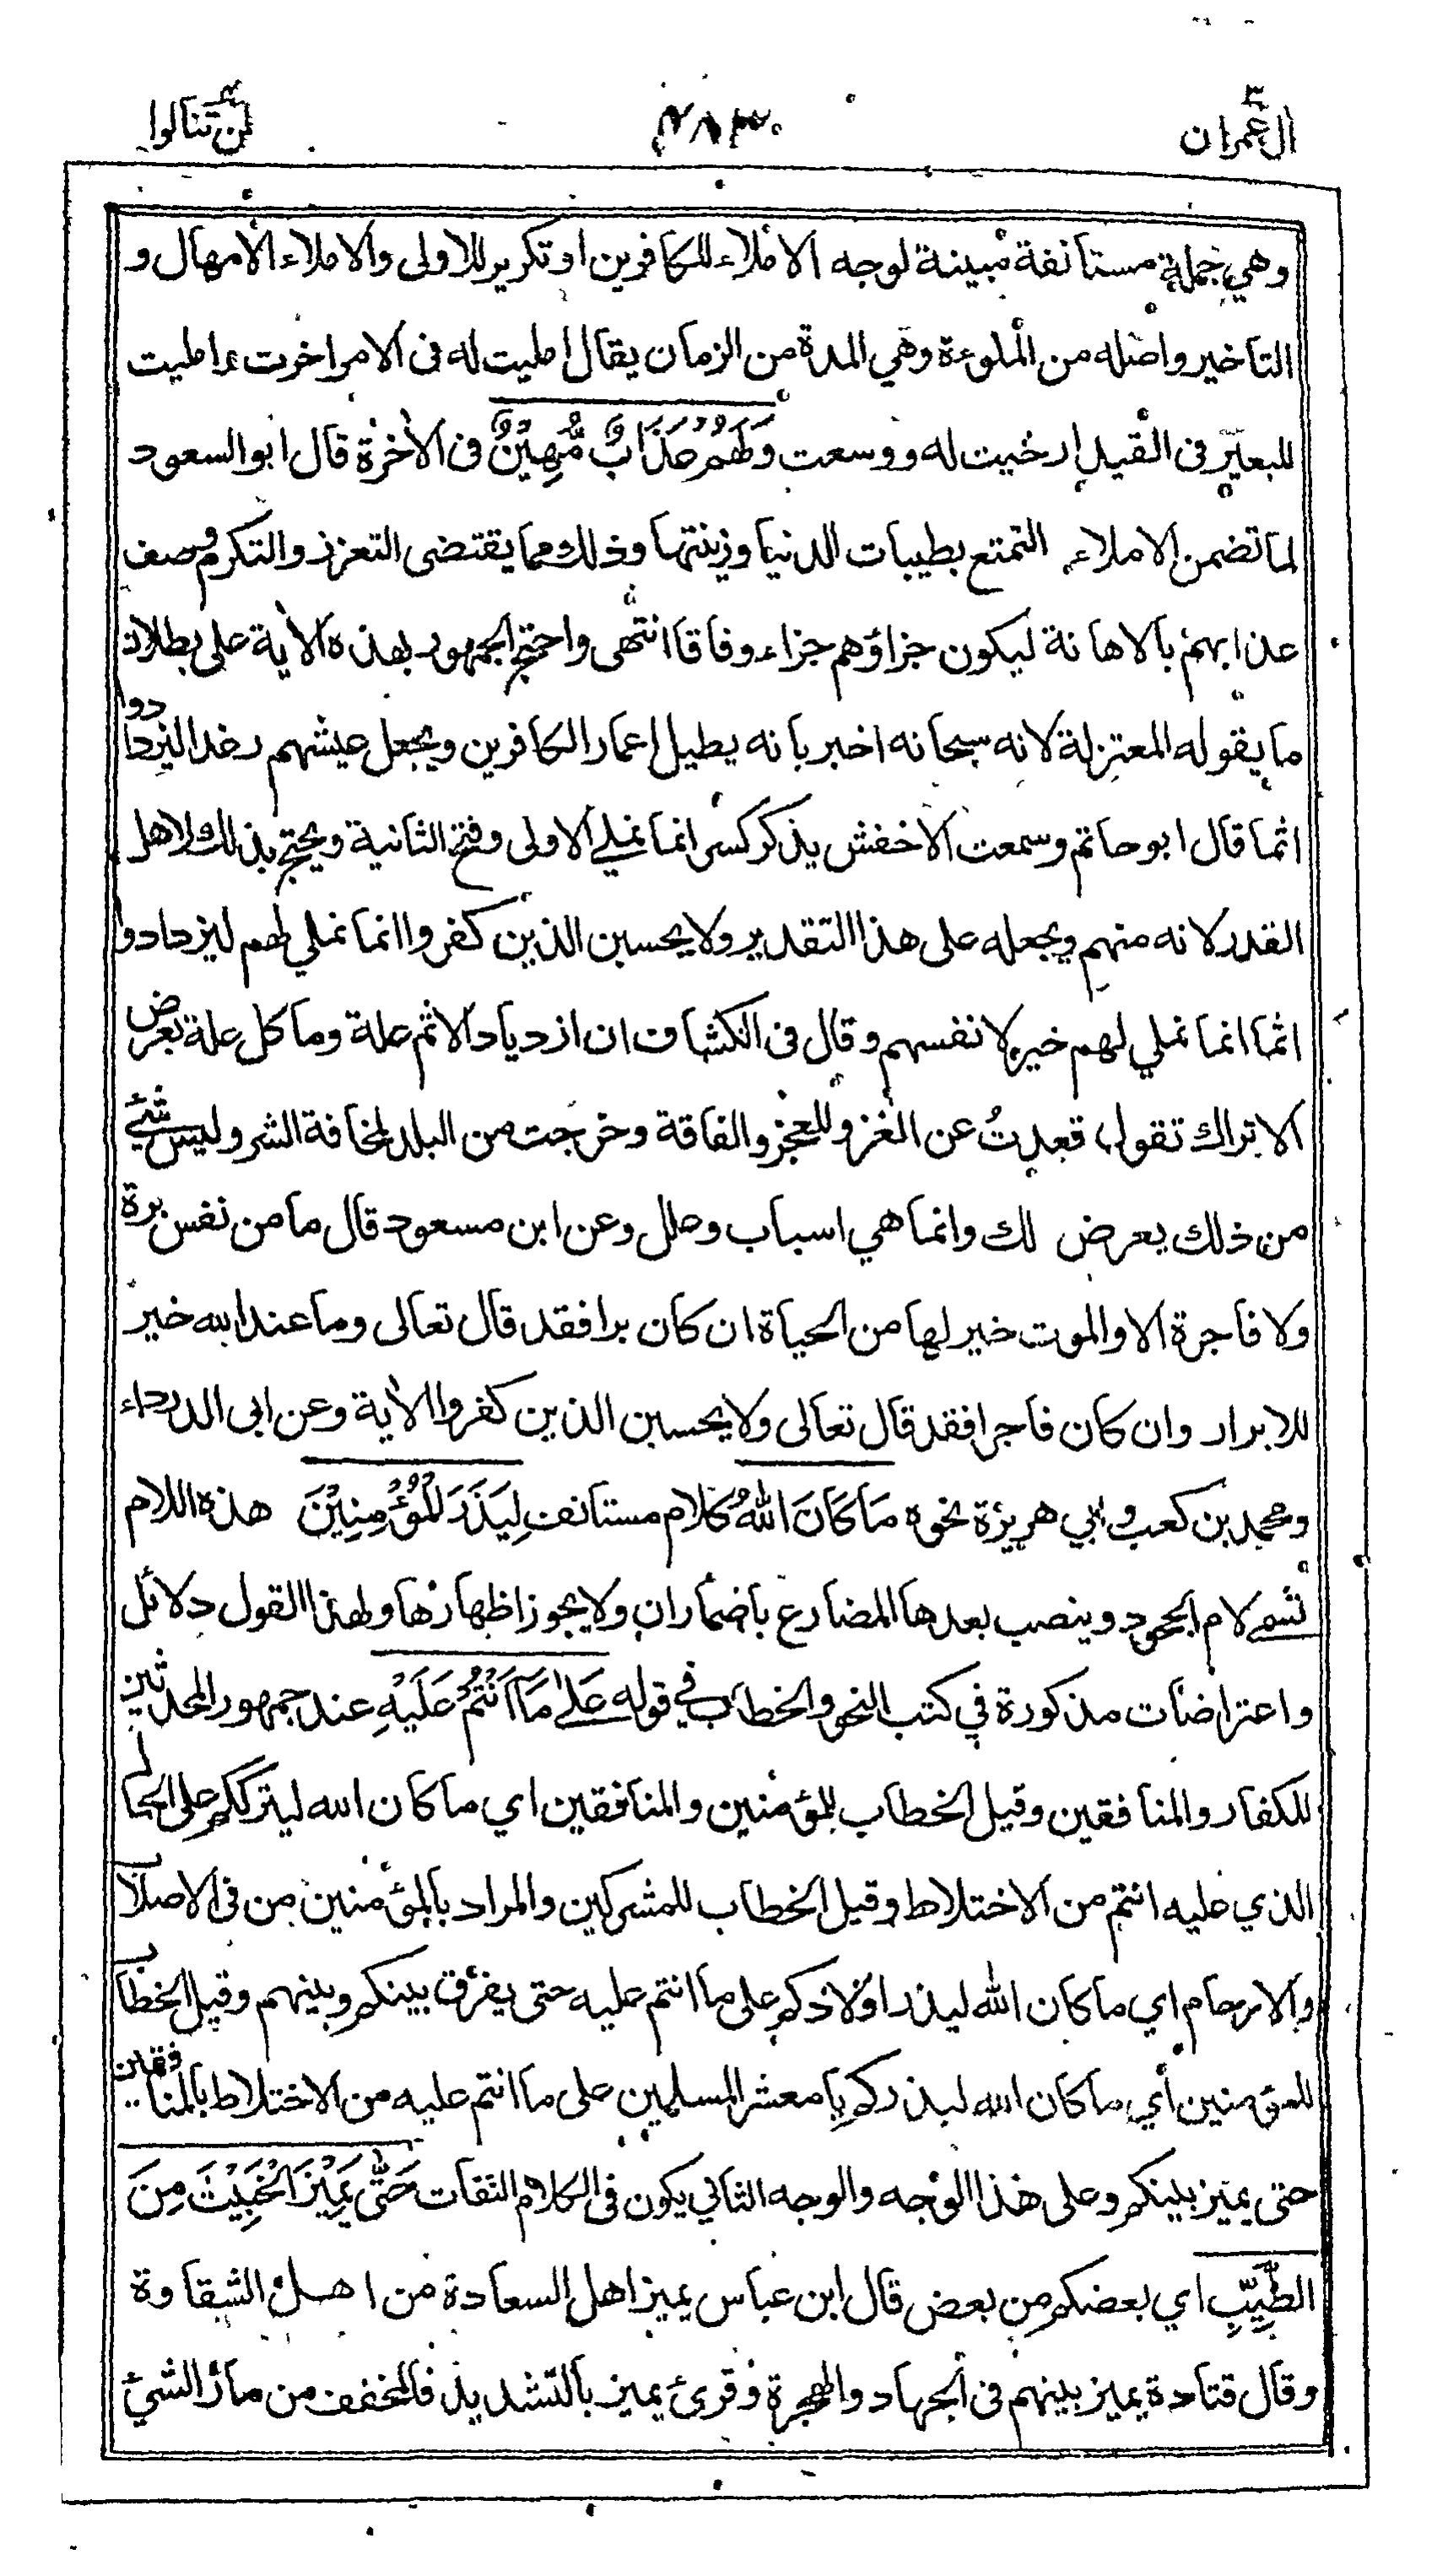 ال عمران ٣
٧٨٣
لن تنالوا ٤
وهي جملة مستانفة مبينة لوجه الاملاء للكافرين او تكرير للاولى والاملاء الامهال و
التاخير واصله من الملوءة وهي المدة من الزمان يقال امليت له فى الامر اخرت وامليت
للبعير فى القيد ارخيت له ووسعت وَلَهُمْ عَذَابٌ مُّهِيْنٌ فى الأخرة قال ابو السعود
لما تضمن الاملاء التمتع بطيبات الدنيا وزينتها وذلك مما يقتضى التعزز والتكرم وصف
عذابهم بالاهانة ليكون جزاؤهم جزاء وفاقا انتهى واحتج الجمهور بهذه الأية على بطلان
ما يقوله المعتزلة لانه سبحانه اخبر بانه يطيل اعمار الكافرين ويجعل عيشهم رغدا ليزدادوا
اثما قال ابو حاتم وسمعت الاخفش يذكر كسر انما نملي الاولى وفتح الثانية ويحتج بذلك لاهل
القدر لانه منهم ويجعله على هذا التقدير ولا يحسبن الذين كفروا انما نملي لهم ليزدادوا
اثما انما نملي لهم خير لانفسهم وقال فى الكشاف ان ازدياد الاثم علة وما كل علة بعرض
الا تراك تقول قعدتُ عن الغزو للعجز والفاقة وخرجت من البلد لمخافة الشر وليس شيئ
من ذلك يعرض لك وانما هي اسباب وعلل وعن ابن مسعود قال ما من نفس برة
ولا فاجرة الا والموت خير لها من الحياة ان كان برا فقد قال تعالى وما عند الله خير
للابرار وان كان فاجرا فقد قال تعالى ولا يحسبن الذين كفروا الأية وعن ابى الدرداء
ومحمد بن كعب وابي هريرة نحوه مَا كَانَ اللهُ كلام مستانف لِيَذَرَ الْمُؤْمِنِيْنَ هذه اللام
تسمى لام الجحود وينصب بعدها المضارع باضمار ان ولا يجوز اظهارها ولهذا القول دلائل
واعتراضات مذكورة في كتب النحو والخطاب في قوله عَلىٰ مَآ اَنْتُمْ عَلَيْهِ عند جمهور المحدثين
للكفار والمنافقين وقيل الخطاب للمؤمنين والمنافقين اي ما كان الله ليترككم على الحال
الذي عليه انتم من الاختلاط وقيل الخطاب للمشركين والمراد بالمؤمنين من فى الاصلاب
والارحام اي ما كان الله ليذر اولادكم على ما انتم عليه حتى يفرق بينكم وبينهم وقيل الخطاب
للمؤمنين أي ما كان الله ليذركم يا معشر المسلمين على ما انتم عليه من الاختلاط بالمنافقين
حتى يميز بينكم وعلى هذا الوجه والوجه الثاني يكون فى الكلام التفات حَتّٰى يَمِيْزَ الْخَبِيْثَ مِنَ
الطَّيِّبِ اي بعضكم من بعض قال ابن عباس يميز اهل السعادة من اهل الشقاوة
وقال قتادة يميز بينهم فى الجهاد والهجرة وقرئ يميز بالتشديد فالمخفف من ماز الشيئ